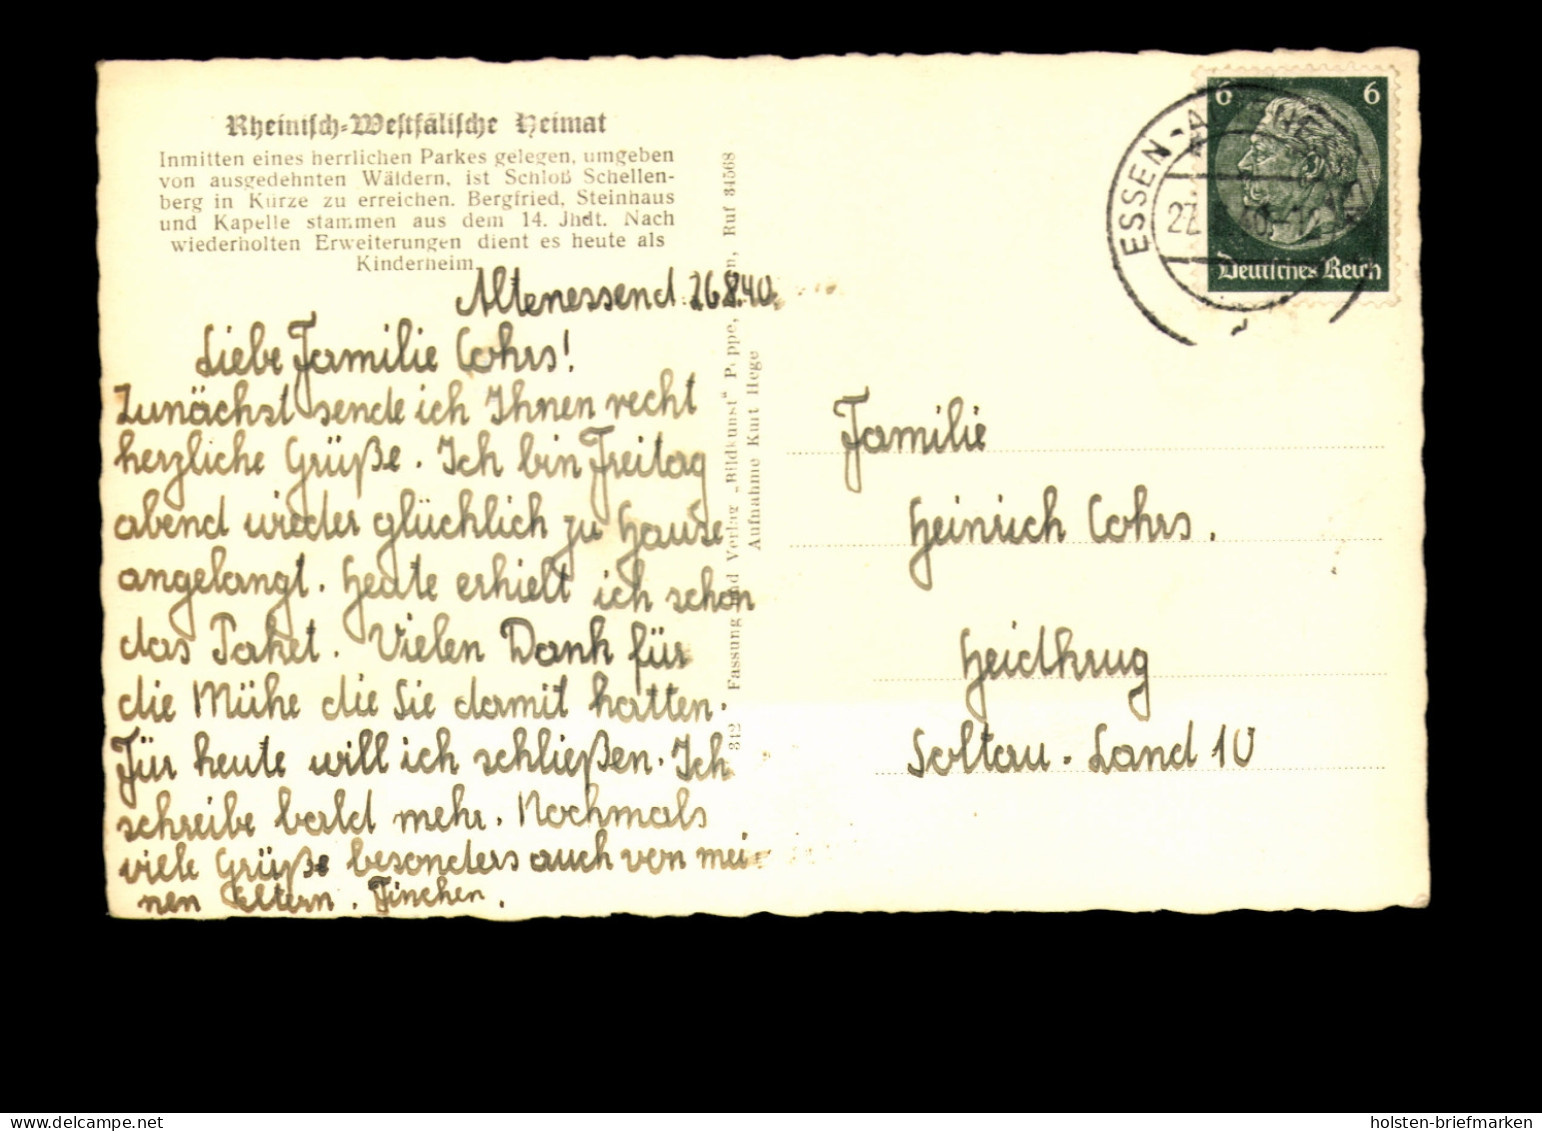 Rheinisch-Westfälische Heimat
Inmitten eines herrlichen Parkes gelegen, umgeben
von ausgedehnten Wäldern, ist Schloß Schellen-
berg in Kürze zu erreichen. Bergfried, Steinhaus
und Kapelle stammen aus dem 14. Jhdt. Nach
wiederholten Erweiterungen dient es heute als
Kinderheim.
Altenessend 26.8.40.
Liebe Familie Cohrs!
Zunächst sende ich Ihnen recht
herzliche Grüße. Ich bin Freitag
abend wieder glücklich zu Hause
angelangt. Heute erhielt ich schon
das Paket. Vielen Dank für
die Mühe die Sie damit hatten.
Für heute will ich schließen. Ich
schreibe bald mehr. Nochmals
viele Grüße besonders auch von mei
nen Eltern. Finchen.
342 Fassung und Verlag „Bildkunst" Ruf 34568
Aufnahme Kurt Hege
6 6
Deutsches Reich
ESSEN
27
Familie
Heinrich Cohrs.
Heidkrug
Soltau-Land 10
delcampe.net
holsten-briefmarken